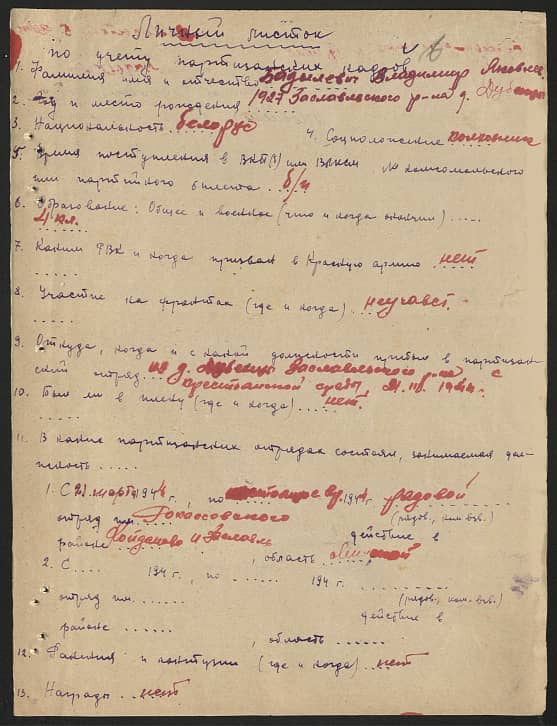 Личный листок
по учету партизанских кадров
1. Фамилия имя и отчество Бадылевич Владимир Яковлев.
2. Год и место рождения 1927 Заславльского р-на д.
3. Национальность белорус 4. Соцположение колхозник
5. Время поступления в ВКП(б) или ВЛКСМ № комсомольского
или партийного билета б/п
6. Образование: Общее и военное (что и когда окончил) .....
4 кл.
7. Каким РВК и когда призван в Красную армию нет
.....
8. Участие на фронтах (где и когда) неучавст.
.....
9. Откуда, когда и с какой должности прибыл в партизан-
ский отряд из д. Заславльского р-на с
крестьянской среды 21.III.1944.
10. Был ли в плену (где и когда) нет.
.....
11. В каких партизанских отрядах состоял, занимаемая дол-
жность .....
1. С 21 марта 1944 г., по настоящее вр. 1944 рядовой
отряд им. Рокоссовского (рядов., ком. взв.)
действие в
районе Койданово и Заславль, область Минской
2. С .... 194 г., по ...... 194 г. ........
отряд им. ...... (рядов., ком. взв.)
действие в
районе ......, область ......
12. Ранения и контузии (где и когда) нет
13. Награды .. нет